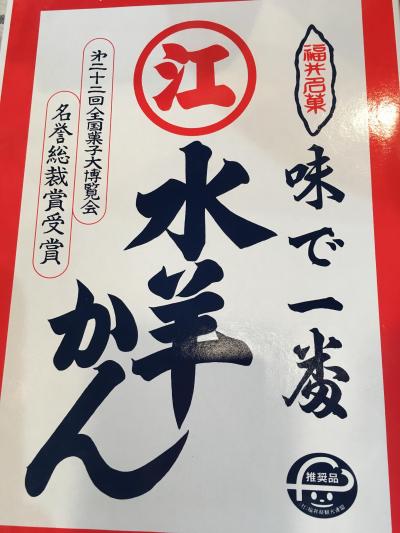 福井名菓
味で一番
江
水羊かん
第二十二回全国菓子大博覧会
名誉総裁賞受賞
推奨品